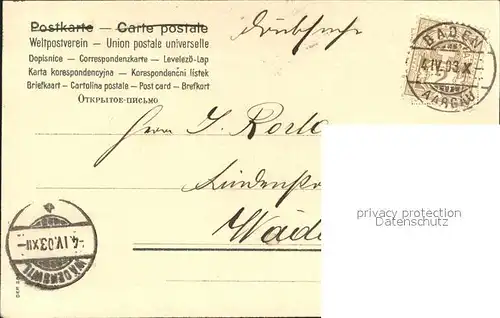 Postkarte — Carte postale
Weltpostverein — Union postale universelle
Dopisnice — Correspondenzkarte — Levelező-Lap
Karta korespondencyjna — Korespondenční lístek
Briefkaart — Cartolina postale — Post card — Brefkort
Открытое-письмо
Drucksache
BADEN
4.IV.03.X
AARGAU
Herrn J.
Wäde
privacy protection
Datenschutz
-4.IV.03.XII-
WÄDENSWIL